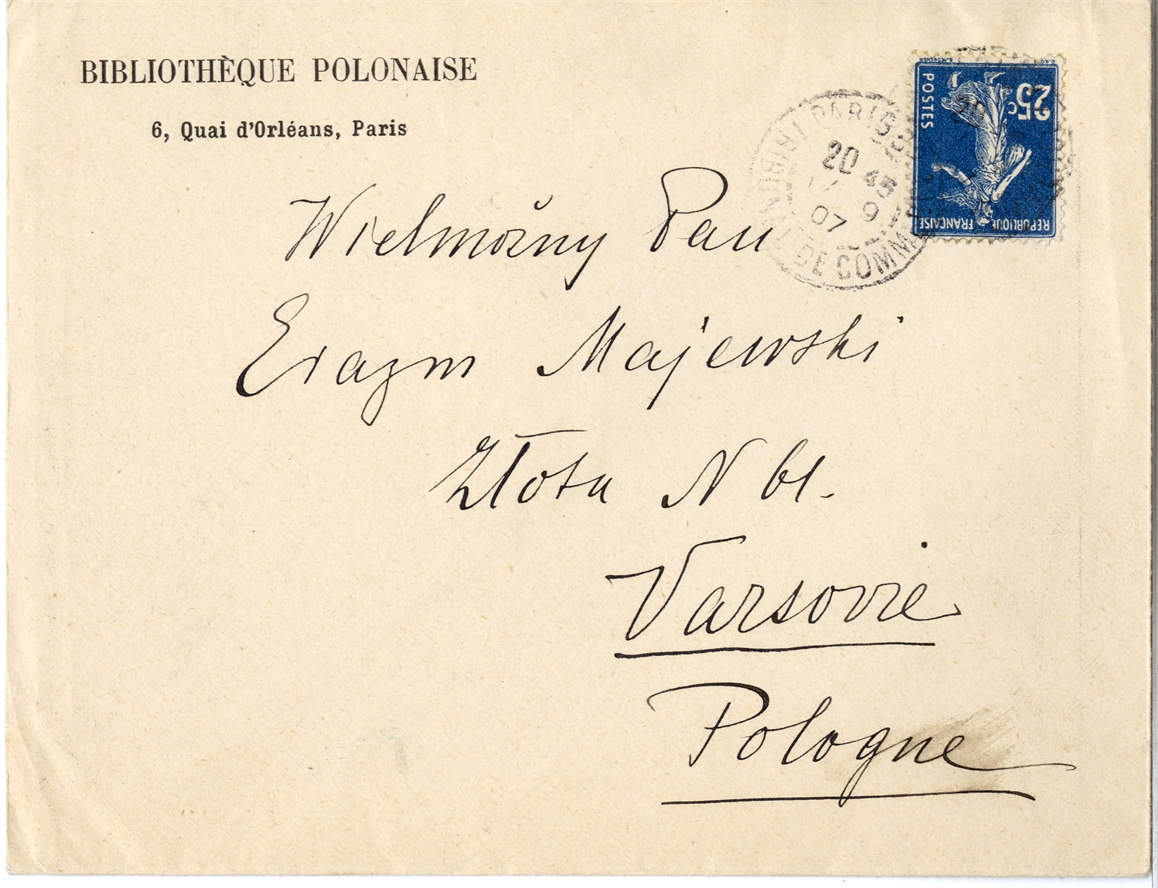 BIBLIOTHÈQUE POLONAISE
6, Quai d'Orléans, Paris
25c
POSTES
REPUBLIQUE FRANÇAISE
PARIS
TRIBUNAL DE COMM
20 45
9
07
Wielmożny Pan
Erazm Majewski
Złota N 61.
Varsovie
Pologne